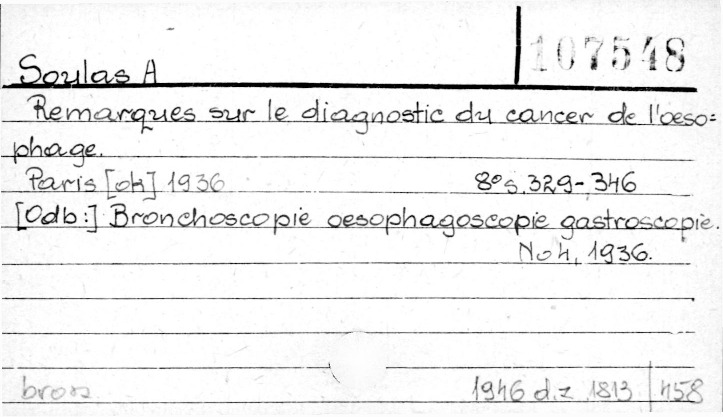 107548
Soulas A
Remarques sur le diagnostic du cancer de l'oeso=
phage.
Paris [ok] 1936 8° s. 329-346
[Odb:] Bronchoscopie oesophagoscopie gastroscopie.
No 4, 1936.
brosz. 1946 d.z 1813 458